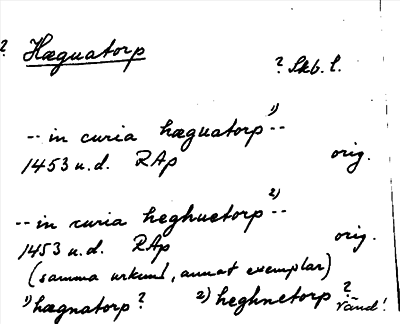 ? Hæguatorp
? Skb. l.
-- in curia hæguatorp 1) --
1453 u.d. RAp orig.
-- in curia heghuetorp 2) --
1453 u.d. RAp orig.
(samma urkund, annat exemplar)
1) hægnatorp? 2) heghnetorp? vänd!